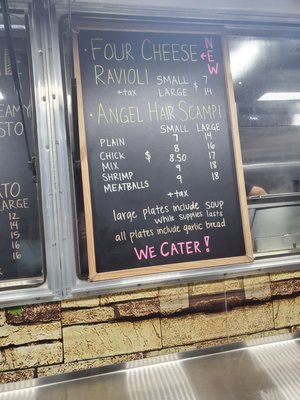 • FOUR CHEESE NEW
RAVIOLI SMALL LARGE
+tax $ 7 14
• ANGEL HAIR SCAMPI
SMALL LARGE
PLAIN 7 14
CHICK $ 8 16
MIX 8.50 17
SHRIMP 9 18
MEATBALLS 9 18
+tax
large plates include SOUP
while supplies last
all plates include garlic bread
WE CATER!
LARGE
12
14
15
16